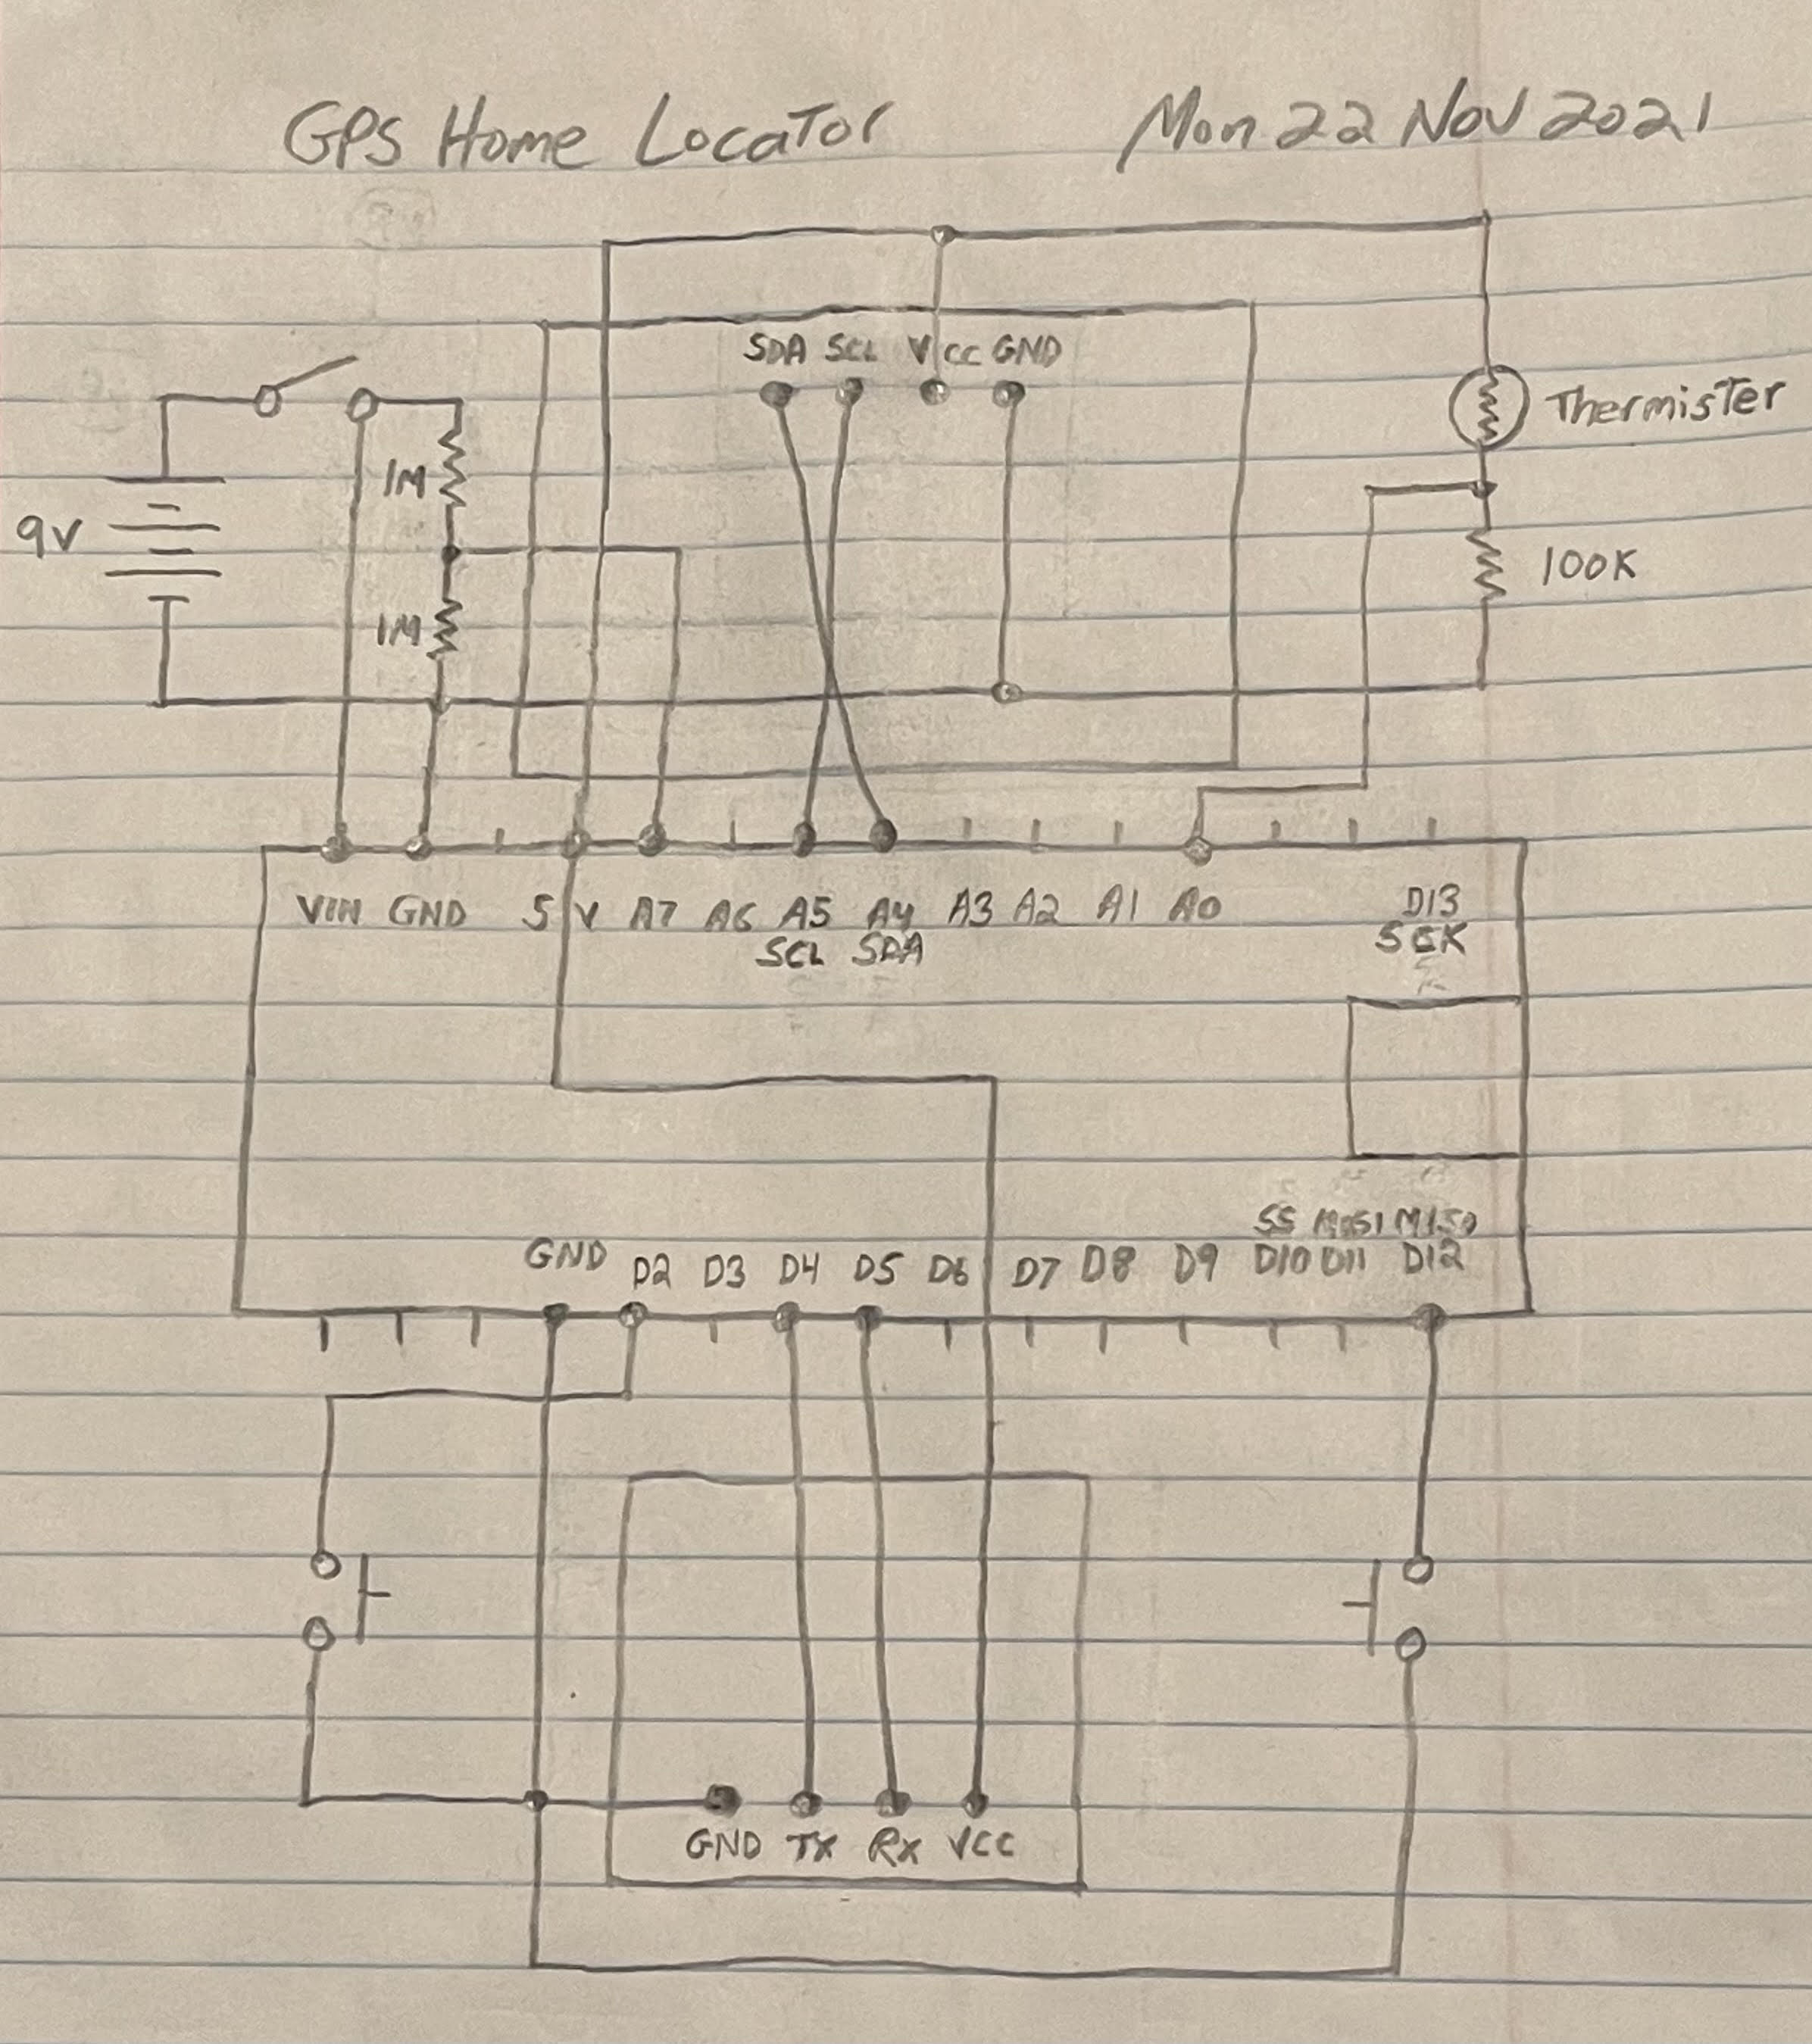 GPS Home Locator Mon 22 Nov 2021
SDA SCL VCC GND
Thermister
1M
9V
100K
1M
VIN GND 5V A7 A6 A5 A4 A3 A2 A1 A0 D13
SCL SDA SCK
SS MOSI MISO
GND D2 D3 D4 D5 D6 D7 D8 D9 D10 D11 D12
GND TX RX VCC